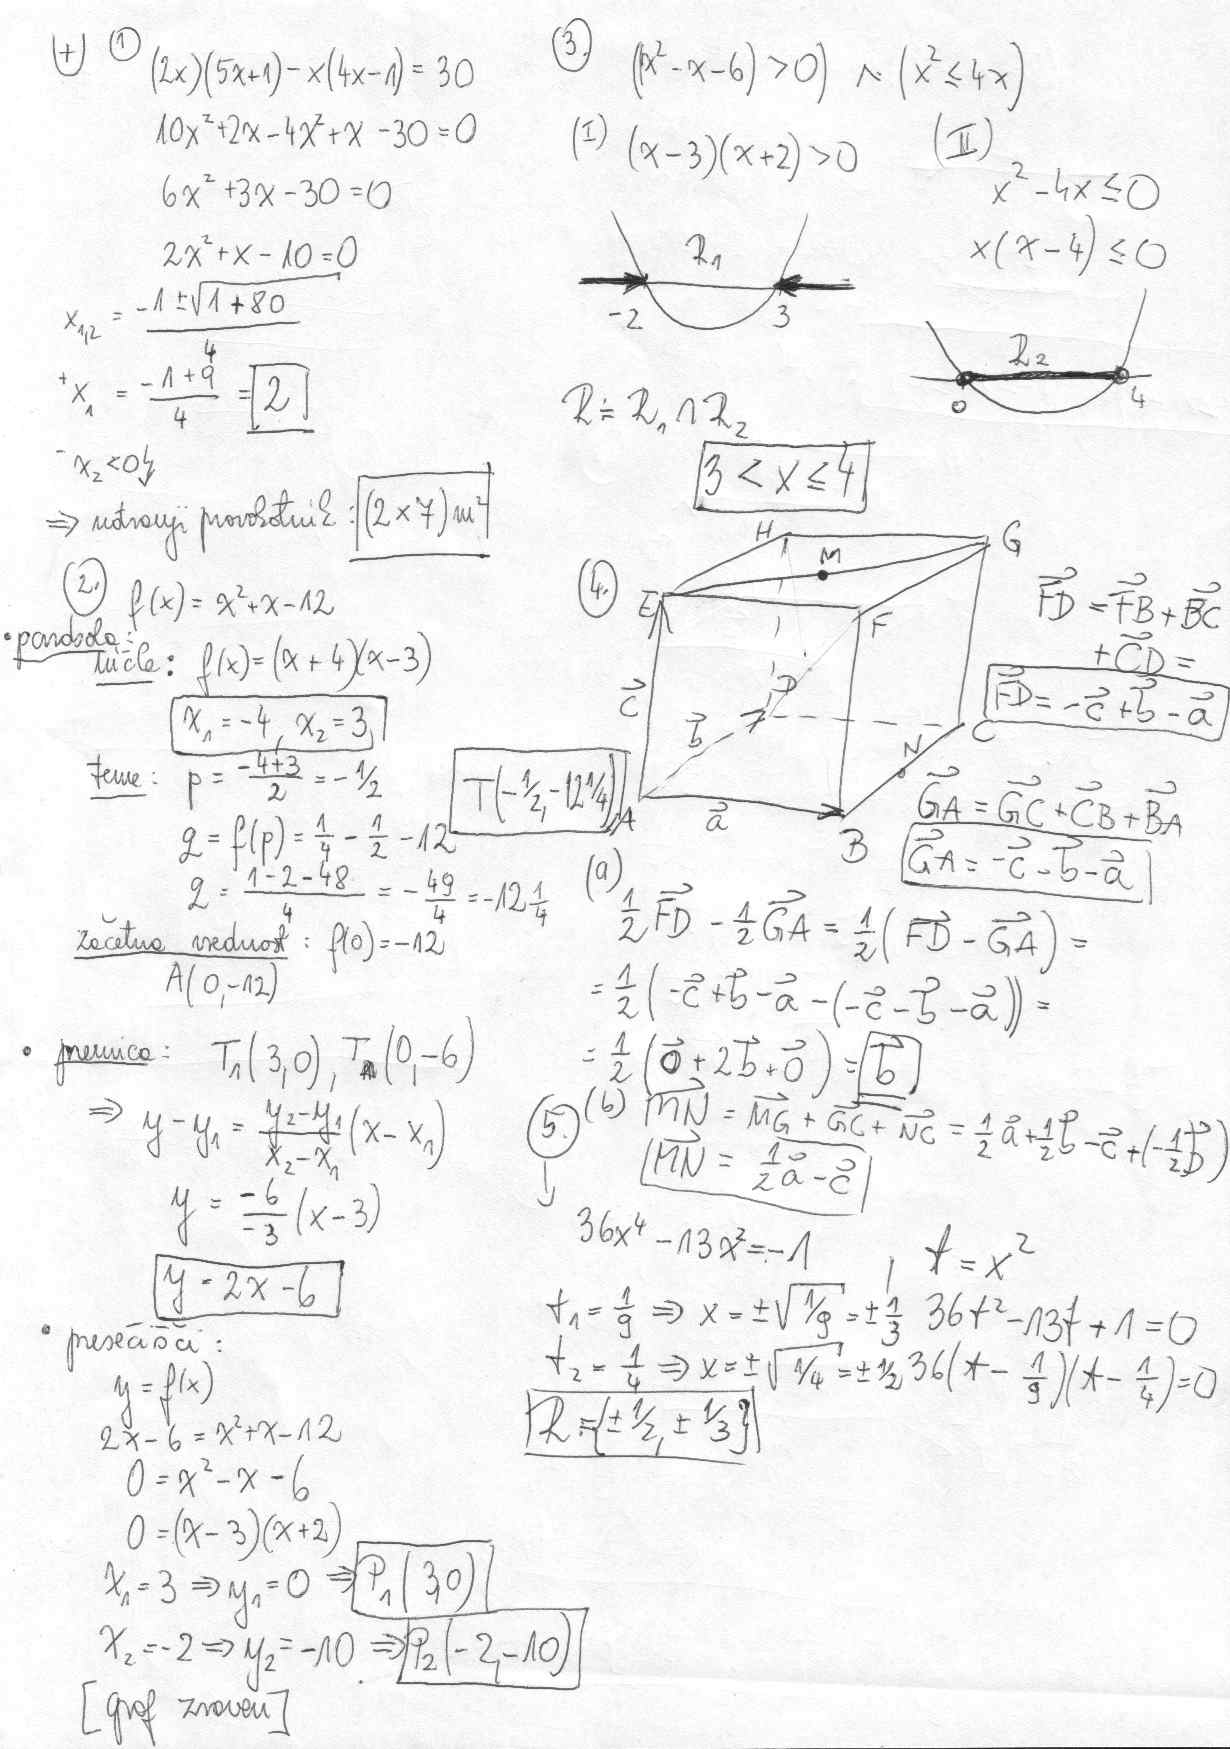 (+) ① (2x)(5x+1) - x(4x-1) = 30
10x²+2x-4x²+x-30=0
6x²+3x-30=0
2x²+x-10=0
x₁,₂ = (-1±√(1+80))/4
⁺x₁ = (-1+9)/4 = 2
⁻x₂<0↯
⇒ notranji pravokotnik: (2×7)m²
②. f(x) = x²+x-12
• parabola:
ničle: f(x)=(x+4)(x-3)
x₁=-4, x₂=3
teme: p = (-4+3)/2 = -1/2
T(-1/2, -12 1/4)
q = f(p) = 1/4 - 1/2 - 12
q = (1-2-48)/4 = -49/4 = -12 1/4
začetna vrednost: f(0)=-12
A(0,-12)
• premica: T₁(3,0), T(0,-6)
⇒ y-y₁ = (y₂-y₁)/(x₂-x₁) (x-x₁)
y = -6/-3 (x-3)
y = 2x-6
• presečišči:
y = f(x)
2x-6 = x²+x-12
0 = x²-x-6
0 = (x-3)(x+2)
x₁=3 ⇒ y₁=0 ⇒ P₁(3,0)
x₂=-2 ⇒ y₂=-10 ⇒ P₂(-2,-10)
[graf zraven]
③. (x²-x-6)>0) ∧ (x²≤4x)
(I) (x-3)(x+2)>0
R₁
-2 3
(II)
x²-4x≤0
x(x-4)≤0
R₂
0 4
R = R₁∩R₂
3 < x ≤ 4
④.
H G
M
E F
c⃗ D
b⃗ N C
A a⃗ B
FD⃗ = FB⃗ + BC⃗
+ CD⃗ =
FD⃗ = -c⃗+b⃗-a⃗
GA⃗ = GC⃗+CB⃗+BA⃗
GA⃗ = -c⃗-b⃗-a⃗
(a)
1/2 FD⃗ - 1/2 GA⃗ = 1/2 (FD⃗ - GA⃗) =
= 1/2 (-c⃗+b⃗-a⃗-(-c⃗-b⃗-a⃗)) =
= 1/2 (0⃗+2b⃗+0⃗) = b⃗
(b) MN⃗ = MG⃗ + GC⃗ + NC⃗ = 1/2 a⃗ + 1/2 b⃗ - c⃗ + (-1/2 b⃗)
MN⃗ = 1/2 a⃗ - c⃗
⑤.
↓
36x⁴-13x²=-1 , t = x²
36t²-13t+1=0
t₁ = 1/9 ⇒ x = ±√1/9 = ±1/3
36(t-1/9)(t-1/4)=0
t₂ = 1/4 ⇒ x = ±√1/4 = ±1/2
R={±1/2, ±1/3}